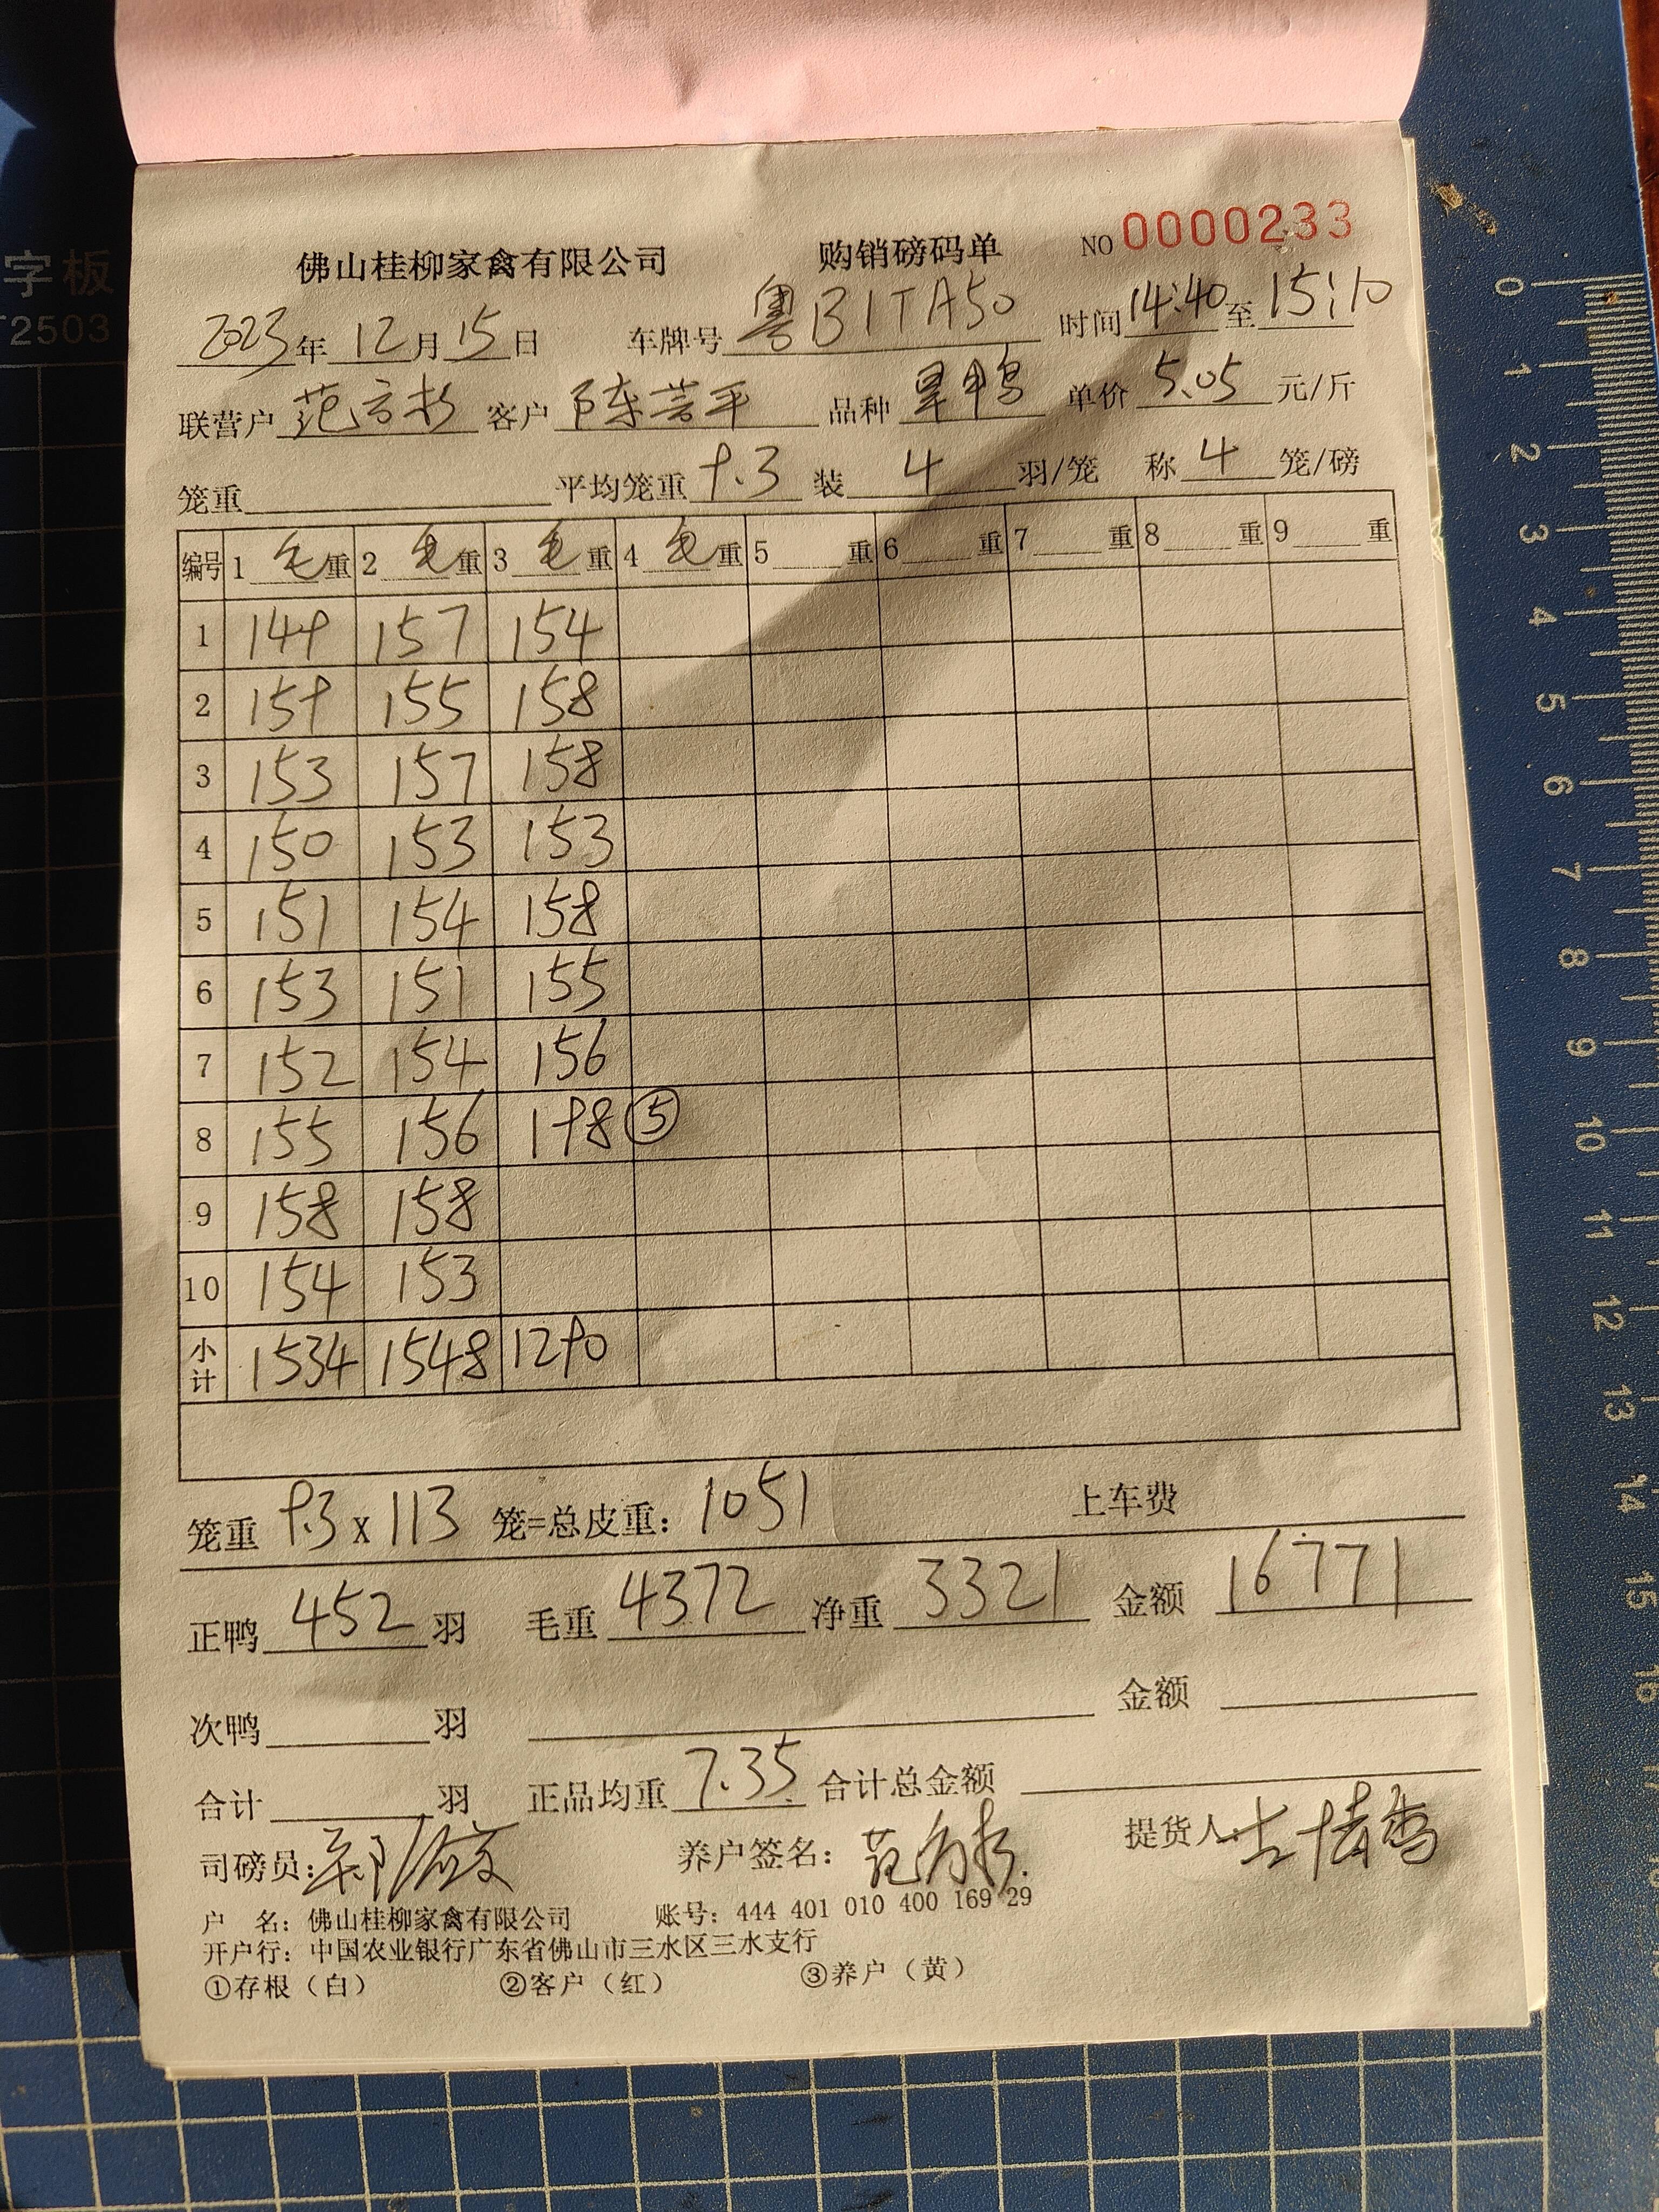 字板
T2503
佛山桂柳家禽有限公司 购销磅码单 NO 0000233
2023年 12月 15日 车牌号 粤B1TA50 时间 14:40 至 15:10
联营户 范 客户 陈 平 品种 鸭 单价 5.05 元/斤
笼重 平均笼重 9.3 装 4 羽/笼 称 4 笼/磅
编号 1 毛重 2 毛重 3 毛重 4 毛重 5 重 6 重 7 重 8 重 9 重
1 149 157 154
2 159 155 158
3 153 157 158
4 150 153 153
5 151 154 158
6 153 151 155
7 152 154 156
8 155 156 198 ⑤
9 158 158
10 154 153
小计 1534 1548 1290
笼重 9.3 X 113 笼=总皮重: 1051 上车费
正鸭 452 羽 毛重 4372 净重 3321 金额 16771
次鸭 羽 金额
合计 羽 正品均重 7.35 合计总金额
司磅员: 养户签名: 范 提货人:
户 名: 佛山桂柳家禽有限公司 账号: 444 401 010 400 169 29
开户行: 中国农业银行广东省佛山市三水区三水支行
①存根（白） ②客户（红） ③养户（黄）
0 1 2 3 4 5 6 7 8 9 10 11 12 13 14 15 16 17